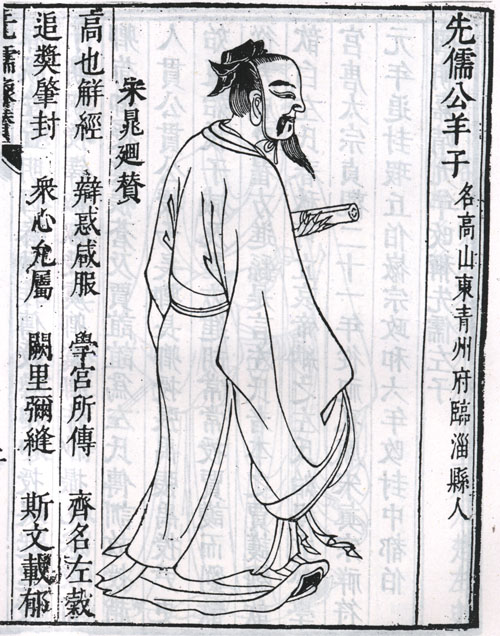 先儒公羊子
名高山東青州府臨淄縣人
宋晁迴賛
高也觧經 辯惑咸服 學官所傳 齊名左穀
追奬肇封 衆心允屬 闕里彌縫 斯文載郁